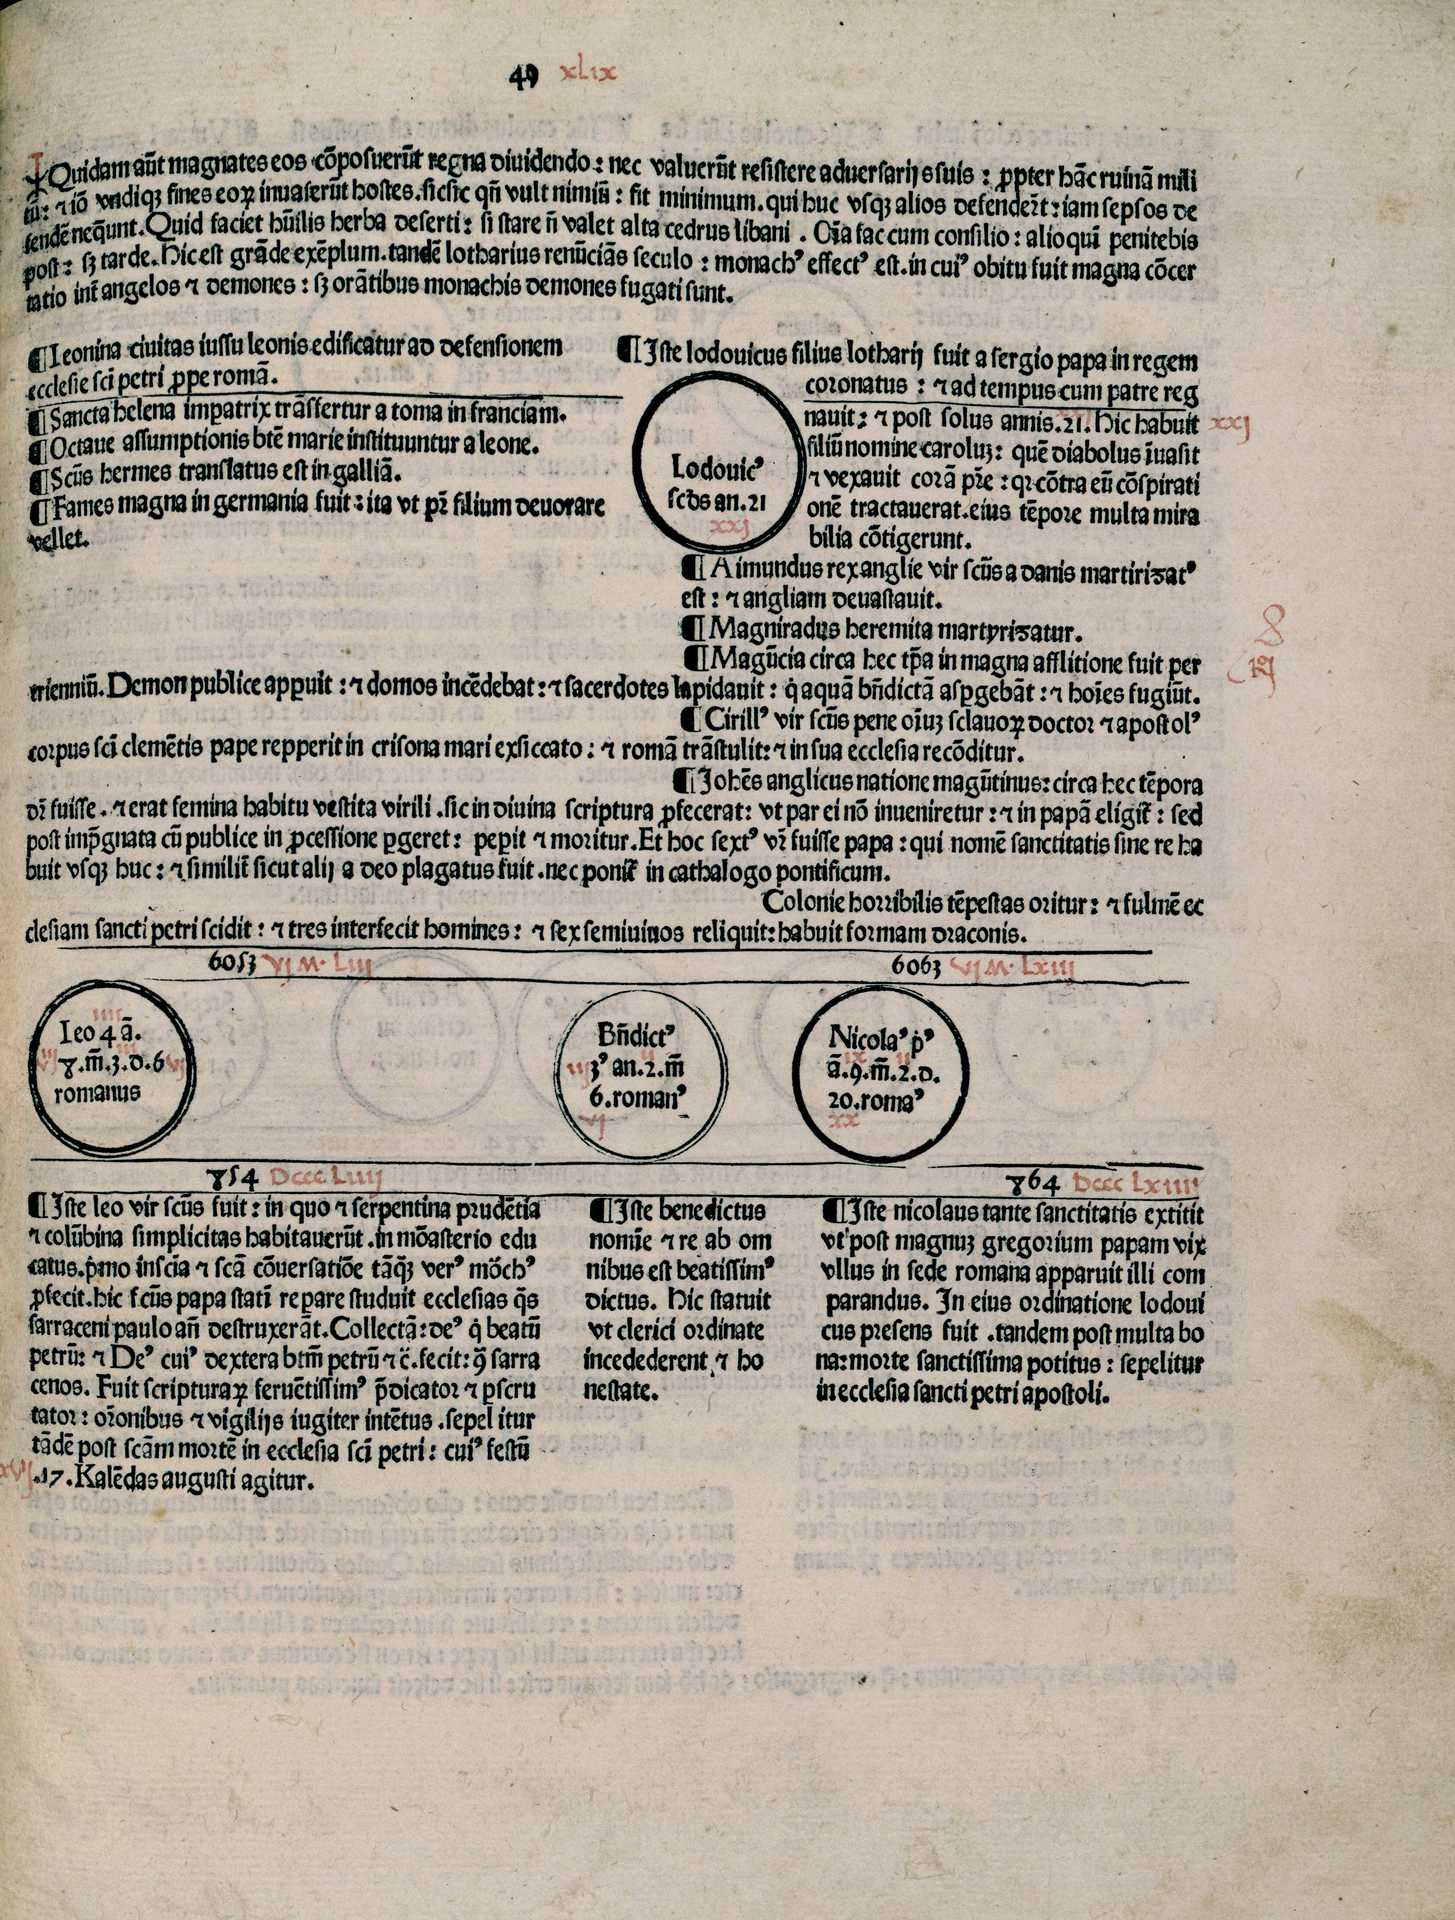 49 xlix
Quidam aūt magnates eos cōposuerūt regna diuidendo: nec valuerūt resistere aduersarijs suis: ꝓpter hāc ruinā mili
tū: ⁊ iō vndiqꝫ fines eoꝝ inuaserūt hostes. sicsic qñ vult nimiū: fit minimum. qui huc vsqꝫ alios defenderūt: iam seipsos de
fendē neq̄unt. Quid faciet hūilis herba deserti: si stare ñ valet alta cedrus libani. Oīa fac cum consilio: alioqui penitebis
post: sꝫ tarde. Hic est grāde exēplum. tandē lotharius renūciās seculo: monachꝰ effectꝰ est. in cuiꝰ obitu fuit magna cōcer
tatio int̄ angelos ⁊ demones: sꝫ orātibus monachis demones fugati sunt.
¶ Leonina ciuitas iussu leonis edificatur ad defensionem
ecclesie sci petri ꝓpe romā.
¶ Sancta helena impatrix trāsfertur a roma in franciam.
¶ Octaue assumptionis btē marie instituuntur a leone.
¶ Scūs hermes translatus est in galliā.
¶ Fames magna in germania fuit: ita vt pr̄ filium deuorare
vellet.
¶ Iste lodouicus filius lotharij fuit a sergio papa in regem
coronatus: ⁊ ad tempus cum patre reg
nauit: ⁊ post solus annis. 21. Hic habuit xxj
filiū nomine caroluꝫ: quē diabolus īuasit
⁊ vexauit corā pr̄e: qꝛ cōtra eū cōspirati
onē tractauerat. eius tēpore multa mira
bilia cōtigerunt.
Lodouicꝰ
scds an. 21
xxj
¶ Aimundus rex anglie vir scūs a danis martirizatꝰ
est: ⁊ angliam deuastauit.
¶ Magniradus heremita martyrizatur.
¶ Magūcia circa hec tp̄a in magna afflitione fuit per
trienniū. Demon publice apꝑuit: ⁊ domos incēdebat: ⁊ sacerdotes lapidauit: q̇ aquā bn̄dictā aspgebāt: ⁊ hoīes fugiūt.
¶ Cirillꝰ vir scūs pene oīuꝫ sclauoꝝ doctor ⁊ apostolꝰ
corpus sci clemētis pape repperit in crisona mari exsiccato: ⁊ romā trāstulit: ⁊ in sua ecclesia recōditur.
¶ Johēs anglicus natione magūtinus: circa hec tēpora
dr̄ fuisse. ⁊ erat femina habitu vestita virili. sic in diuina scriptura ꝓfecerat: vt par ei nō inueniretur: ⁊ in papā eligit̄: sed
post imp̄gnata cū publice in ꝓcessione ꝑgeret: peꝑit ⁊ moritur. Et hoc sextꝰ vr̄ fuisse papa: qui nomē sanctitatis sine re ha
buit vsqꝫ huc: ⁊ similit̄ sicut alij a deo plagatus fuit. nec ponit̄ in cathalogo pontificum.
Colonie horribilis tēpestas oritur: ⁊ fulmē ec
clesiam sancti petri scidit: ⁊ tres interfecit homines: ⁊ sex semiuiuos reliquit: habuit formam draconis.
6053 vj M. Liij 6063 vj M. Lxiij
iiij
Leo 4 ā.
8. m̄. 3. d. 6
romanus
Bn̄dictꝰ
3ꝰ an. 2. m̄
6. romanꝰ
vj
Nicolaꝰ pꝰ
ā. 9. m̄. 2. d.
20. romaꝰ
xx
854 Dccc Liiij 864 Dccc Lxiiij
¶ Iste leo vir scūs fuit: in quo ⁊ serpentina prudētia
⁊ colūbina simplicitas habitauerūt. in mōasterio edu
catus. pꝰmo inscia ⁊ scā cōuersatiōe tāqꝫ verꝰ mōchꝰ
ꝓfecit. hic fcūs papa stati reꝑare studuit ecclesias q̄s
sarraceni paulo añ destruxerāt. Collectā: deꝰ q̇ beatū
petrū: ⁊ Deꝰ cuiꝰ dextera btm̄ petrū ⁊ c̄. fecit: ꝯ sarra
cenos. Fuit scripturaꝝ feruētissimꝰ p̄dicator ⁊ ꝑscru
tator: or̄onibus ⁊ vigilijs iugiter intētus. sepelitur
tādē post scām mortē in ecclesia sci petri: cuiꝰ festū
xvij .17. Kalēdas augusti agitur.
¶ Iste benedictus
nomie ⁊ re ab om
nibus est beatissimꝰ
dictus. Hic statuit
vt clerici ordinate
incedederent ⁊ ho
nestate.
¶ Iste nicolaus tante sanctitatis extitit
vt post magnuꝫ gregorium papam vix
vllus in sede romana apparuit illi com
parandus. In eius ordinatione lodoui
cus presens fuit. tandem post multa bo
na: morte sanctissima potitus: sepelitur
in ecclesia sancti petri apostoli.